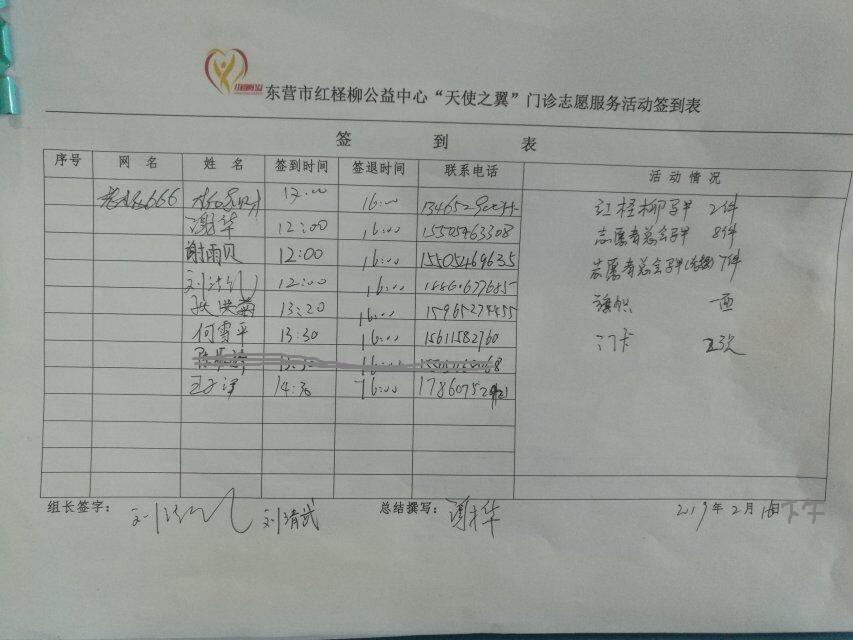 东营市红柽柳公益中心“天使之翼”门诊志愿服务活动签到表
签 到 表
序号 网 名 姓 名 签到时间 签退时间 联系电话 活 动 情 况
666 12:00 16:00 红柽柳马甲 2件
谢华 12:00 16:00 15505463308 志愿者总会马甲 8件
谢雨贝 12:00 16:00 15505469635 志愿者总会马甲 7件
12:00 16:00 18860677685 旗帜 一面
张洪菊 13:20 16:00 15965274455
何雪平 13:30 16:00 15611582760 门卡
14:30 16:00
组长签字： 刘清武 总结撰写：谢华 2019年2月16日下午